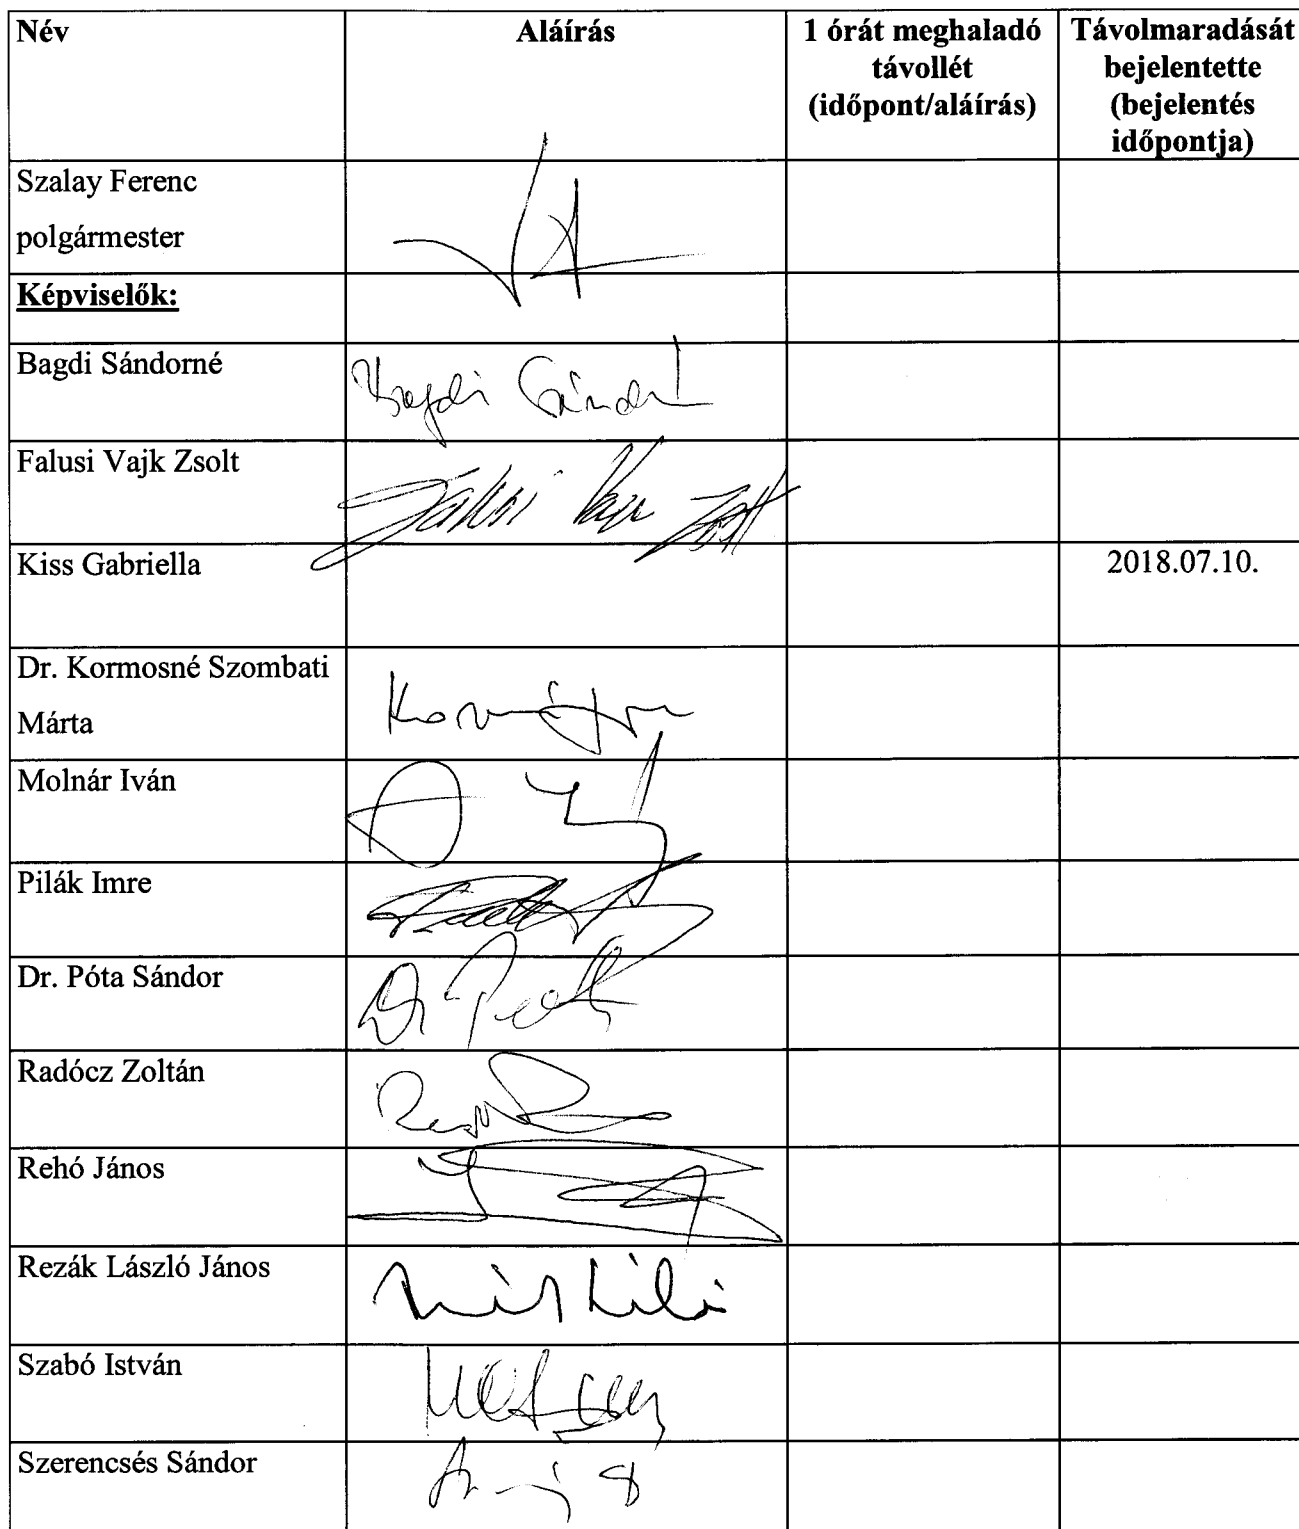 Név
Aláírás
1 órát meghaladó
távollét
(időpont/aláírás)
Távolmaradását
bejelentette
(bejelentés
időpontja)
Szalay Ferenc
polgármester
Képviselők:
Bagdi Sándorné
Bagdi Sándorné
Falusi Vajk Zsolt
Falusi Vajk Zsolt
Kiss Gabriella
2018.07.10.
Dr. Kormosné Szombati
Márta
Molnár Iván
Pilák Imre
Dr. Póta Sándor
Radócz Zoltán
Rehó János
Rezák László János
Szabó István
Szerencsés Sándor